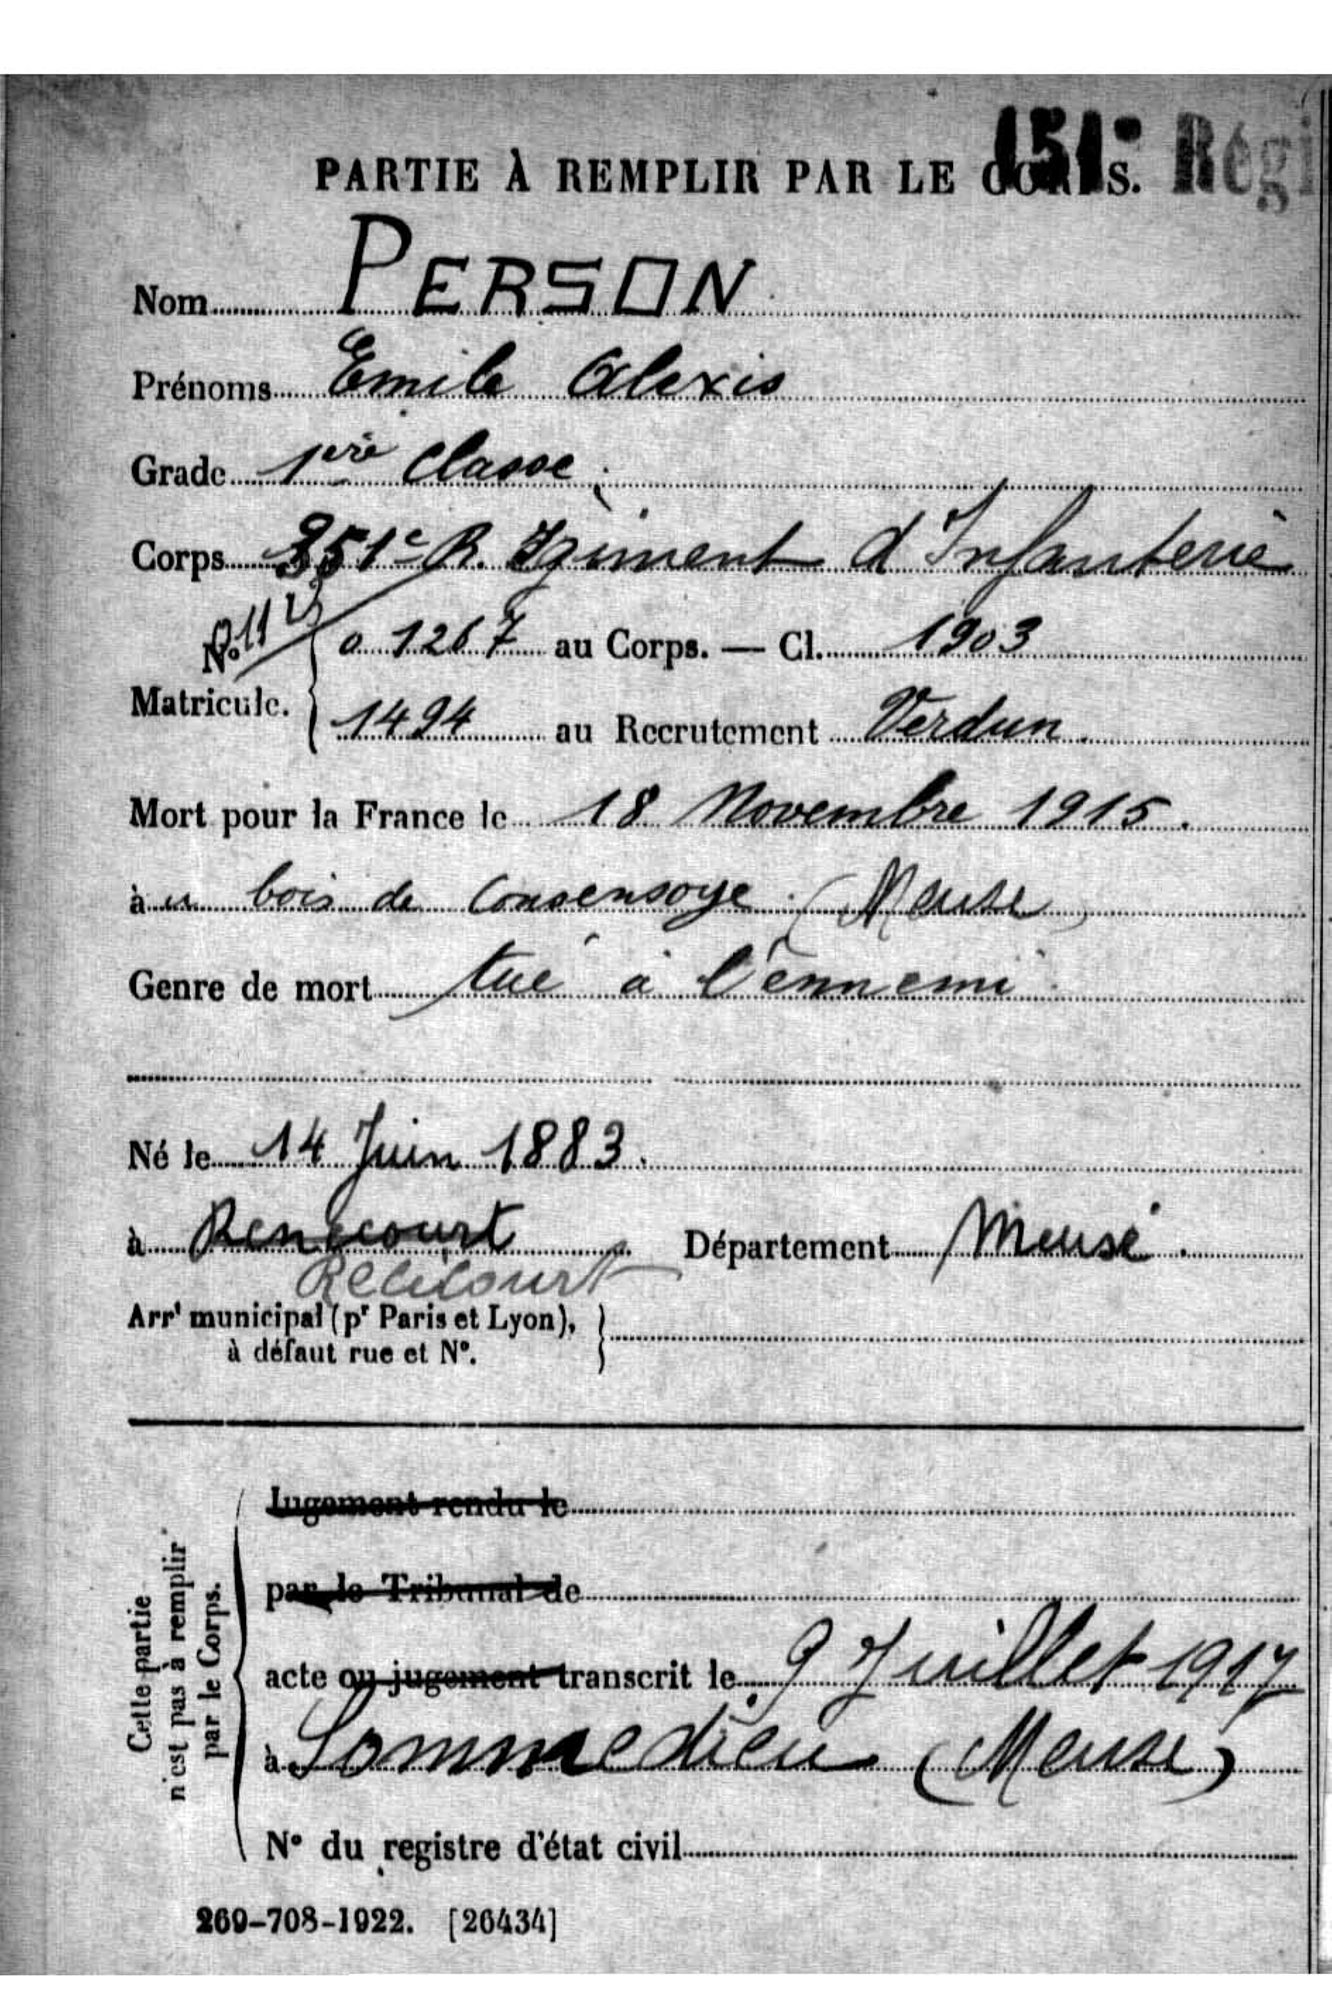 151e Régi
PARTIE À REMPLIR PAR LE CORPS.
Nom PERSON
Prénoms Emile Alexis
Grade 1ère Classe
Corps 351e Régiment d'Infanterie
No 11
0 1267 au Corps. — Cl. 1903
Matricule.
1494 au Recrutement Verdun.
Mort pour la France le 18 Novembre 1915.
à u bois de Consensoye (Meuse)
Genre de mort tué à l'ennemi
Né le 14 Juin 1883.
à Renecourt Département Meuse.
Récicourt
Arrt municipal (pr Paris et Lyon),
à défaut rue et N°.
Cette partie
n'est pas à remplir
par le Corps.
Jugement rendu le
par le Tribunal de
acte ou jugement transcrit le 9 Juillet 1917
à Sommedieu (Meuse)
N° du registre d'état civil
269-708-1922. [26434]